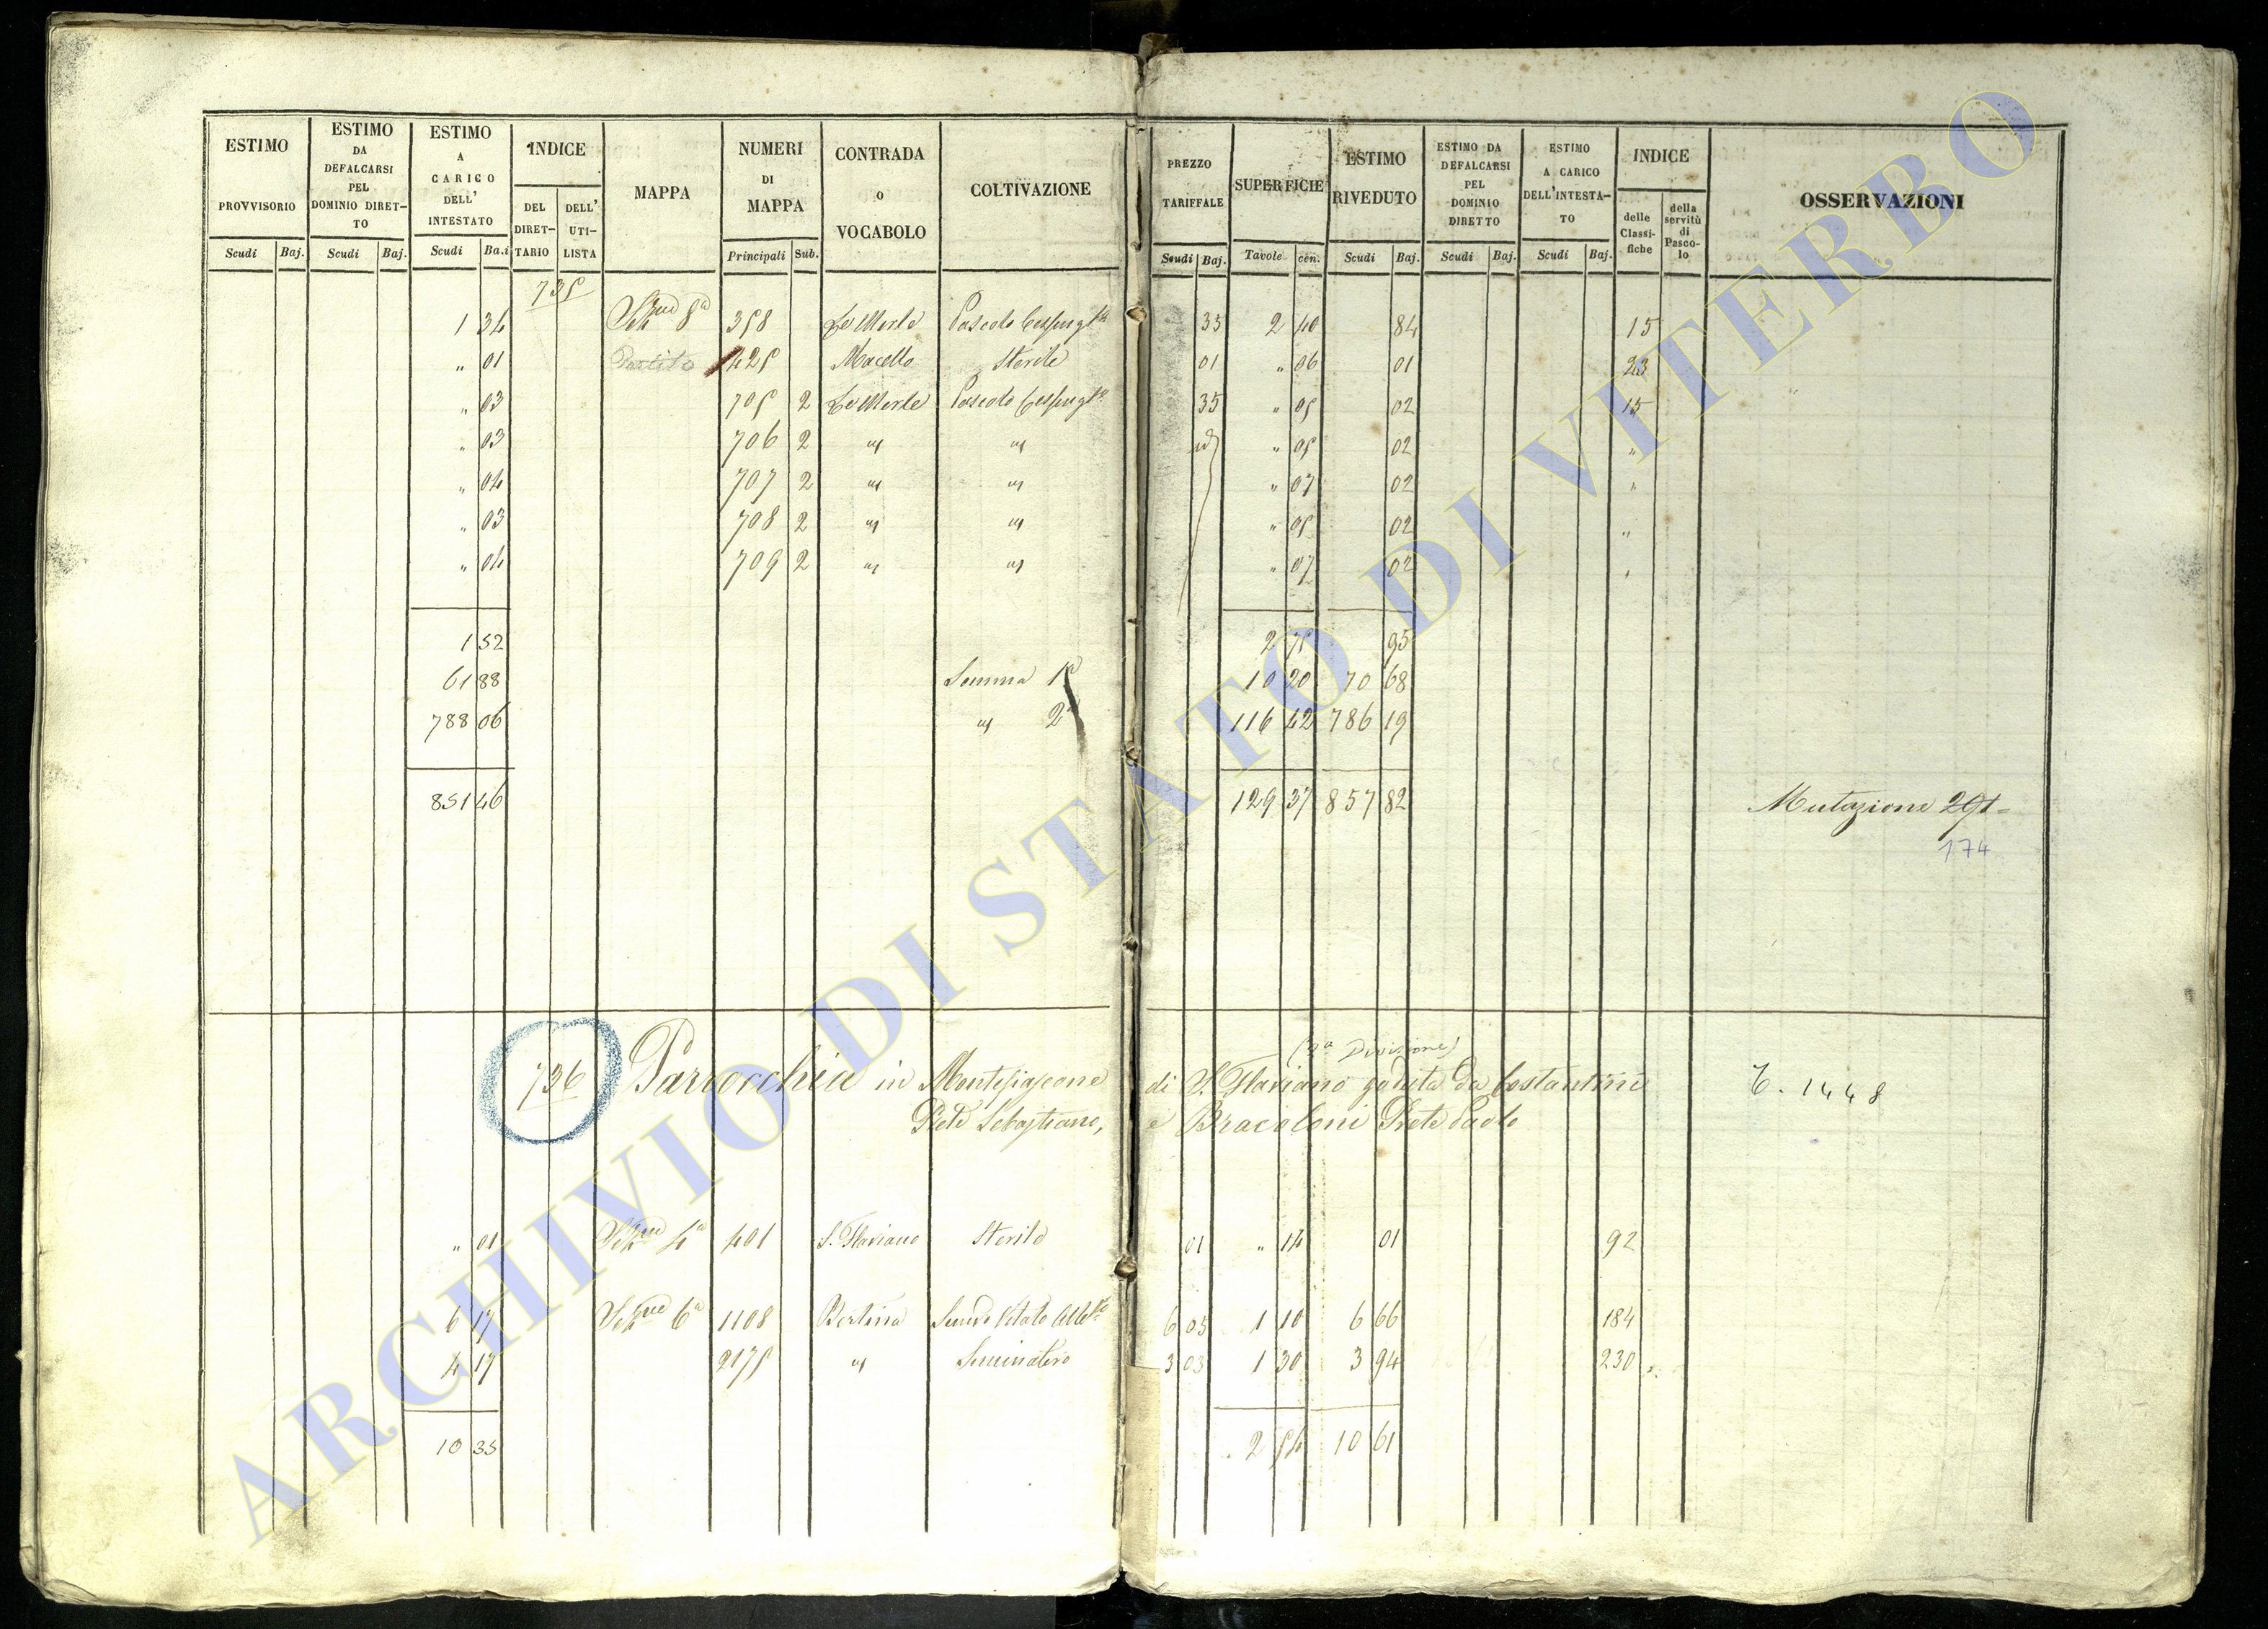 ESTIMO PROVVISORIO
Scudi Baj.
ESTIMO DA DEFALCARSI PEL DOMINIO DIRET-TO
Scudi Baj.
ESTIMO A CARICO DELL' INTESTATO
Scudi Baj.
INDICE
DEL DIRET-TARIO
DELL' UTI-LISTA
MAPPA
NUMERI DI MAPPA
Principali Sub.
CONTRADA O VOCABOLO
COLTIVAZIONE
PREZZO TARIFFALE
Scudi Baj.
SUPERFICIE
Tavole cen.
ESTIMO RIVEDUTO
Scudi Baj.
ESTIMO DA DEFALCARSI PEL DOMINIO DIRETTO
Scudi Baj.
ESTIMO A CARICO DELL'INTESTA-TO
Scudi Baj.
INDICE
delle Classi-fiche
della servitù di Pasco-lo
OSSERVAZIONI
735
1 34 8ª 358 Le Merle Pascolo 35 2 40 84 15
" 01 425 Macello Sterile 01 " 06 01 23
" 03 705 2 Le Merle Pascolo 35 " 05 02 15
" 03 706 2 " " id " 05 02 "
" 04 707 2 " " " 07 02 "
" 03 708 2 " " " 05 02 "
" 04 709 2 " " " 07 02 "
1 52 2 75 95
61 88 Somma 1ª 10 20 70 68
788 06 " 2ª 116 42 786 19
851 46 129 37 857 82 Mutazione 291
174
(2ª Divisione)
736 Parrocchia in Montefiascone di S. Flaviano goduta da Costantini T. 1448
Prete Sebastiano, e Bracoloni Prete Paolo
" 01 4ª 401 S. Flaviano Sterile 01 " 14 01 92
6 17 6ª 1108 Bertina 6 05 1 10 6 66 184
4 17 2175 " Seminativo 3 03 1 30 3 94 230
10 35 2 54 10 61
ARCHIVIO DI STATO DI VITERBO